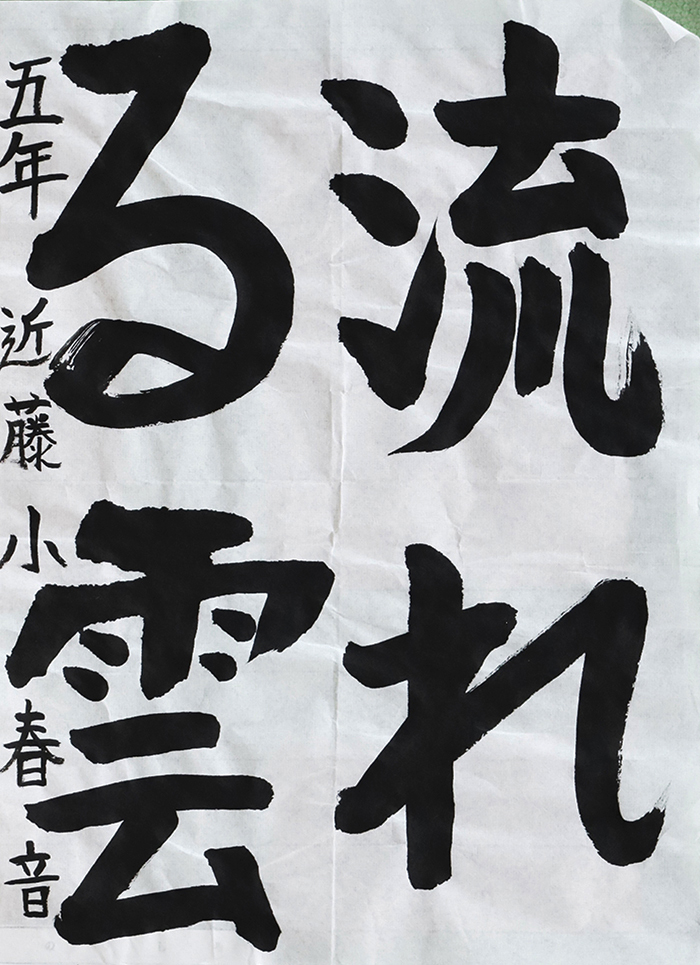 流れ
る雲
五年 近藤小春音